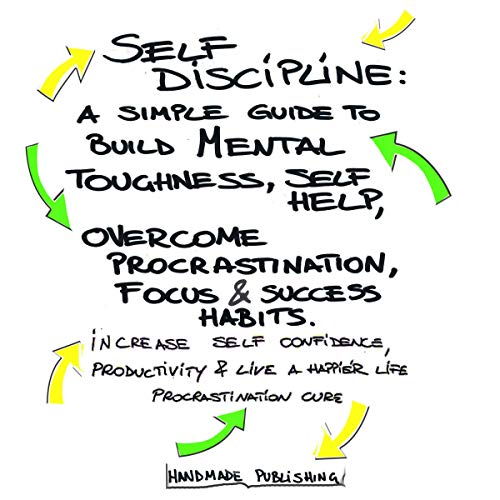 SELF
DISCIPLINE:
A SIMPLE GUIDE TO
BUILD MENTAL
TOUGHNESS, SELF
HELP,
OVERCOME
PROCRASTINATION,
FOCUS & SUCCESS
HABITS.
INCREASE SELF CONFIDENCE,
PRODUCTIVITY & LIVE A HAPPIER LIFE
PROCRASTINATION CURE
HANDMADE PUBLISHING